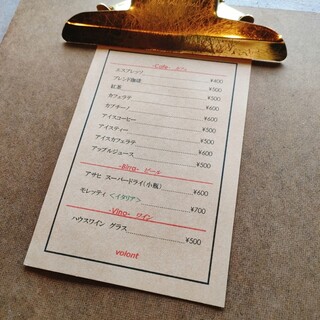 -Cafe- カフェ
エスプレッソ ¥400
ブレンド珈琲 ¥500
紅茶 ¥500
カフェラテ ¥600
カプチーノ ¥600
アイスコーヒー ¥500
アイスティー ¥500
アイスカフェラテ ¥600
アップルジュース ¥500
-Birra- ビール
アサヒ スーパードライ(小瓶) ¥600
モレッティ <イタリア> ¥700
-Vino- ワイン
ハウスワイン グラス ¥500
volont